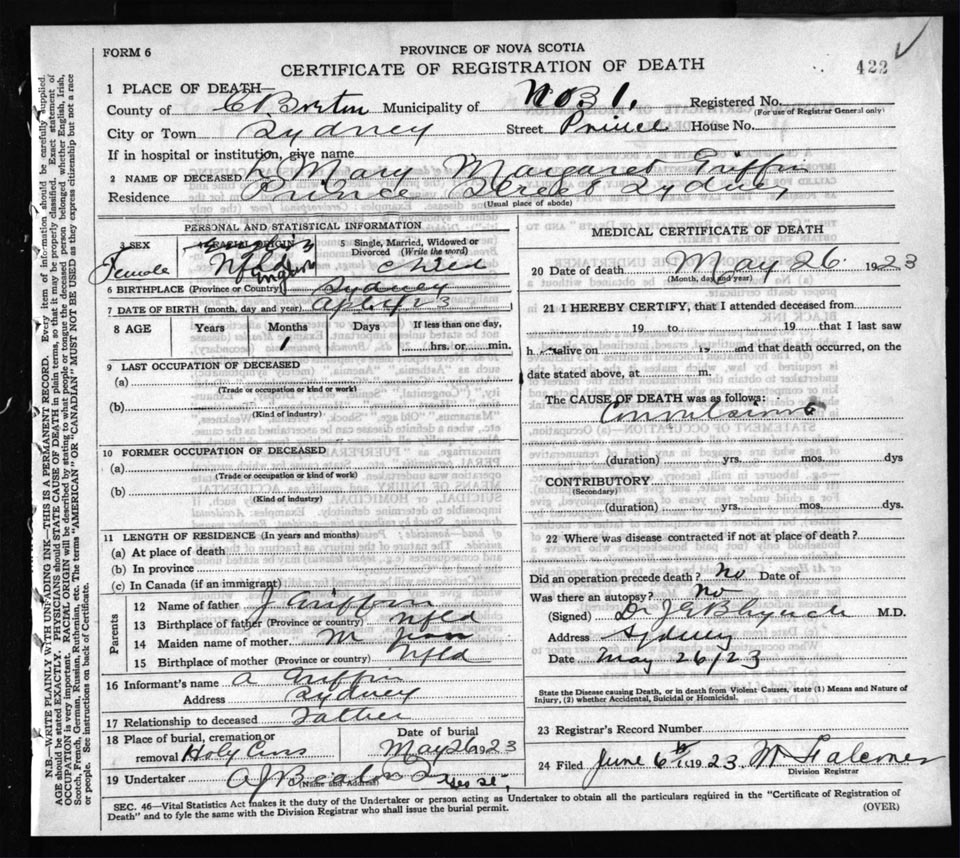 FORM 6
PROVINCE OF NOVA SCOTIA
CERTIFICATE OF REGISTRATION OF DEATH
422
1 PLACE OF DEATH
County of C Breton Municipality of No 31. Registered No.
(For use of Registrar General only)
City or Town Sydney Street Prince House No.
If in hospital or institution, give name
2 NAME OF DECEASED Mary Margaret Griffin
Residence Prince Street Sydney
(Usual place of abode)
PERSONAL AND STATISTICAL INFORMATION
3 SEX Female
Nfld
5 Single, Married, Widowed or Divorced (Write the word)
child
6 BIRTHPLACE (Province or Country) Sydney
7 DATE OF BIRTH (month, day and year)
8 AGE Years Months Days If less than one day,
1 hrs. or min.
9 LAST OCCUPATION OF DECEASED
(a)
(Trade or occupation or kind or work)
(b)
(Kind of industry)
10 FORMER OCCUPATION OF DECEASED
(a)
(Trade or occupation or kind or work)
(b)
(Kind of industry)
11 LENGTH OF RESIDENCE (In years and months)
(a) At place of death
(b) In province
(c) In Canada (if an immigrant)
Parents
12 Name of father J Griffin
13 Birthplace of father (Province or country) Nfld
14 Maiden name of mother M
15 Birthplace of mother (Province or country) Nfld
16 Informant's name A Griffin
Address Sydney
17 Relationship to deceased Father
18 Place of burial, cremation or removal Holy Cross
Date of burial
May 26 1923
19 Undertaker A J Beaton
(Name and Address)
MEDICAL CERTIFICATE OF DEATH
20 Date of death May 26 1923
(Month, day and year)
21 I HEREBY CERTIFY, that I attended deceased from
19 to 19 that I last saw
h alive on 19 and that death occurred, on the
date stated above, at m.
The CAUSE OF DEATH was as follows:
Convulsions
(duration) yrs. mos. dys
CONTRIBUTORY
(Secondary)
(duration) yrs. mos. dys.
22 Where was disease contracted if not at place of death?
Did an operation precede death? No Date of
Was there an autopsy? No
(Signed) Dr J G B Lynch M.D.
Address Sydney
Date May 26/23
State the Disease causing Death, or in death from Violent Causes, state (1) Means and Nature of Injury, (2) whether Accidental, Suicidal or Homicidal.
23 Registrar's Record Number
24 Filed June 6th 1923. M Falconer
Division Registrar
SEC. 46—Vital Statistics Act makes it the duty of the Undertaker or person acting as Undertaker to obtain all the particulars required in the "Certificate of Registration of
Death" and to fyle the same with the Division Registrar who shall issue the burial permit.
(OVER)
N.B.—WRITE PLAINLY WITH UNFADING INK—THIS IS A PERMANENT RECORD. Every item of information should be carefully supplied.
AGE should be stated EXACTLY. PHYSICIANS should STATE CAUSE OF DEATH in plain terms, so that it may be properly classified. Exact statement of
OCCUPATION is very important. RACIAL ORIGIN will be described by stating to what people or tongue the deceased person belonged whether English, Irish,
Scotch, French, German, Russian, Ruthenian, etc. The terms "AMERICAN" OR "CANADIAN" MUST NOT BE USED as they express citizenship but not a race
or people. See instructions on back of Certificate.